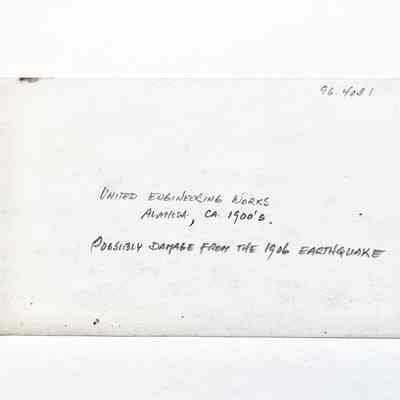 96.4081
UNITED ENGINEERING WORKS
ALAMEDA, CA. 1900's.
POSSIBLY DAMAGE FROM THE 1906 EARTHQUAKE